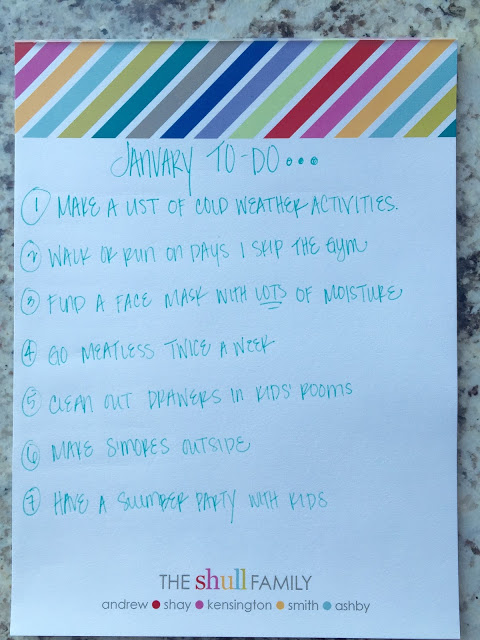 JANUARY TO-DO...
1 MAKE A LIST OF COLD WEATHER ACTIVITIES.
2 WALK OR RUN ON DAYS I SKIP THE GYM
3 FIND A FACE MASK WITH LOTS OF MOISTURE
4 GO MEATLESS TWICE A WEEK
5 CLEAN OUT DRAWERS IN KIDS' ROOMS
6 MAKE S'MORES OUTSIDE
7 HAVE A SLUMBER PARTY WITH KIDS
THE shull FAMILY
andrew ● shay ● kensington ● smith ● ashby